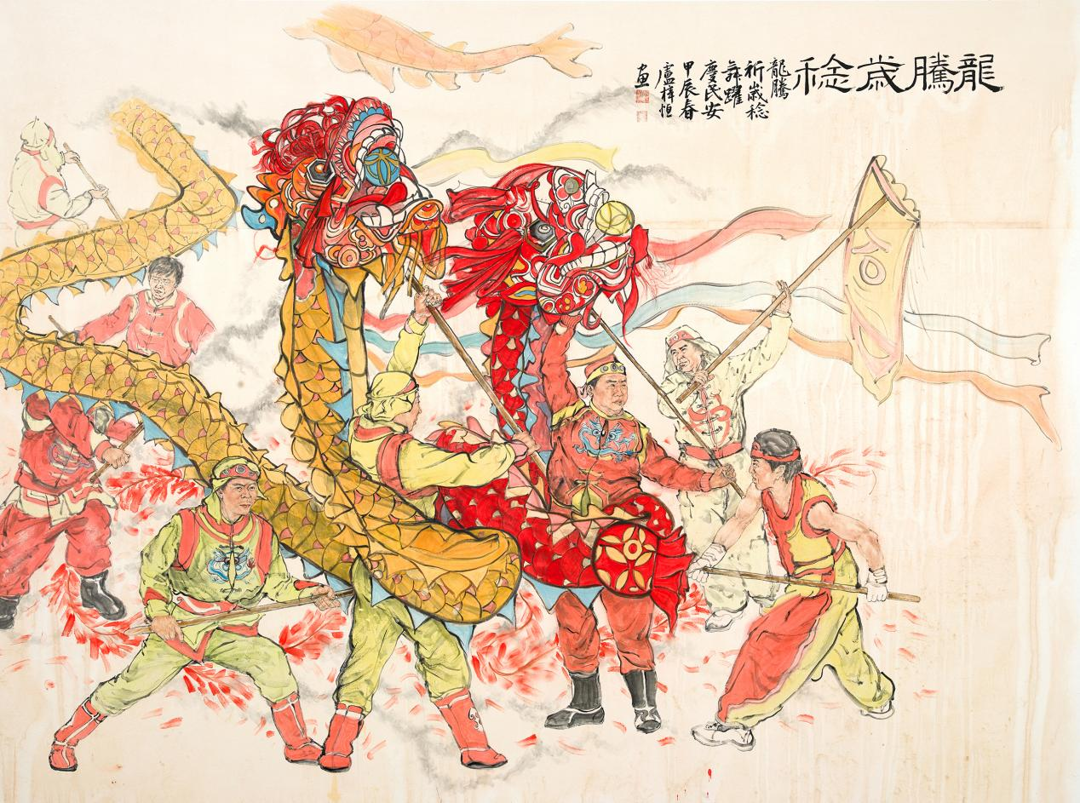 龍騰歲稔
龍騰
祈歲稔
舞躍
慶民安
甲辰春
盧梓恒
画